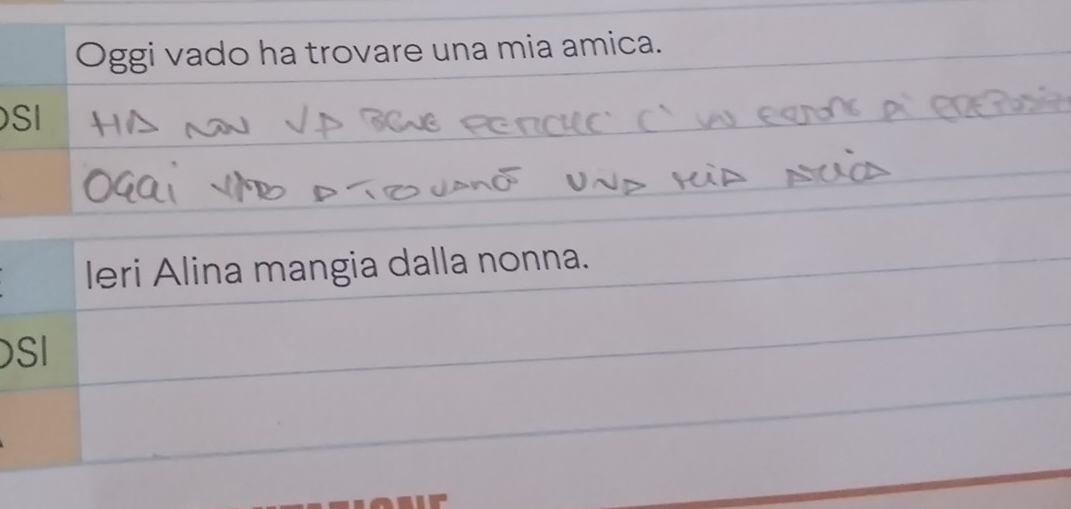 Oggi vado ha trovare una mia amica.
OSI HA NON VA BENE PERCHE' C'
OGGI VADO A TROVARE UNA MIA AMICA
Ieri Alina mangia dalla nonna.
OSI